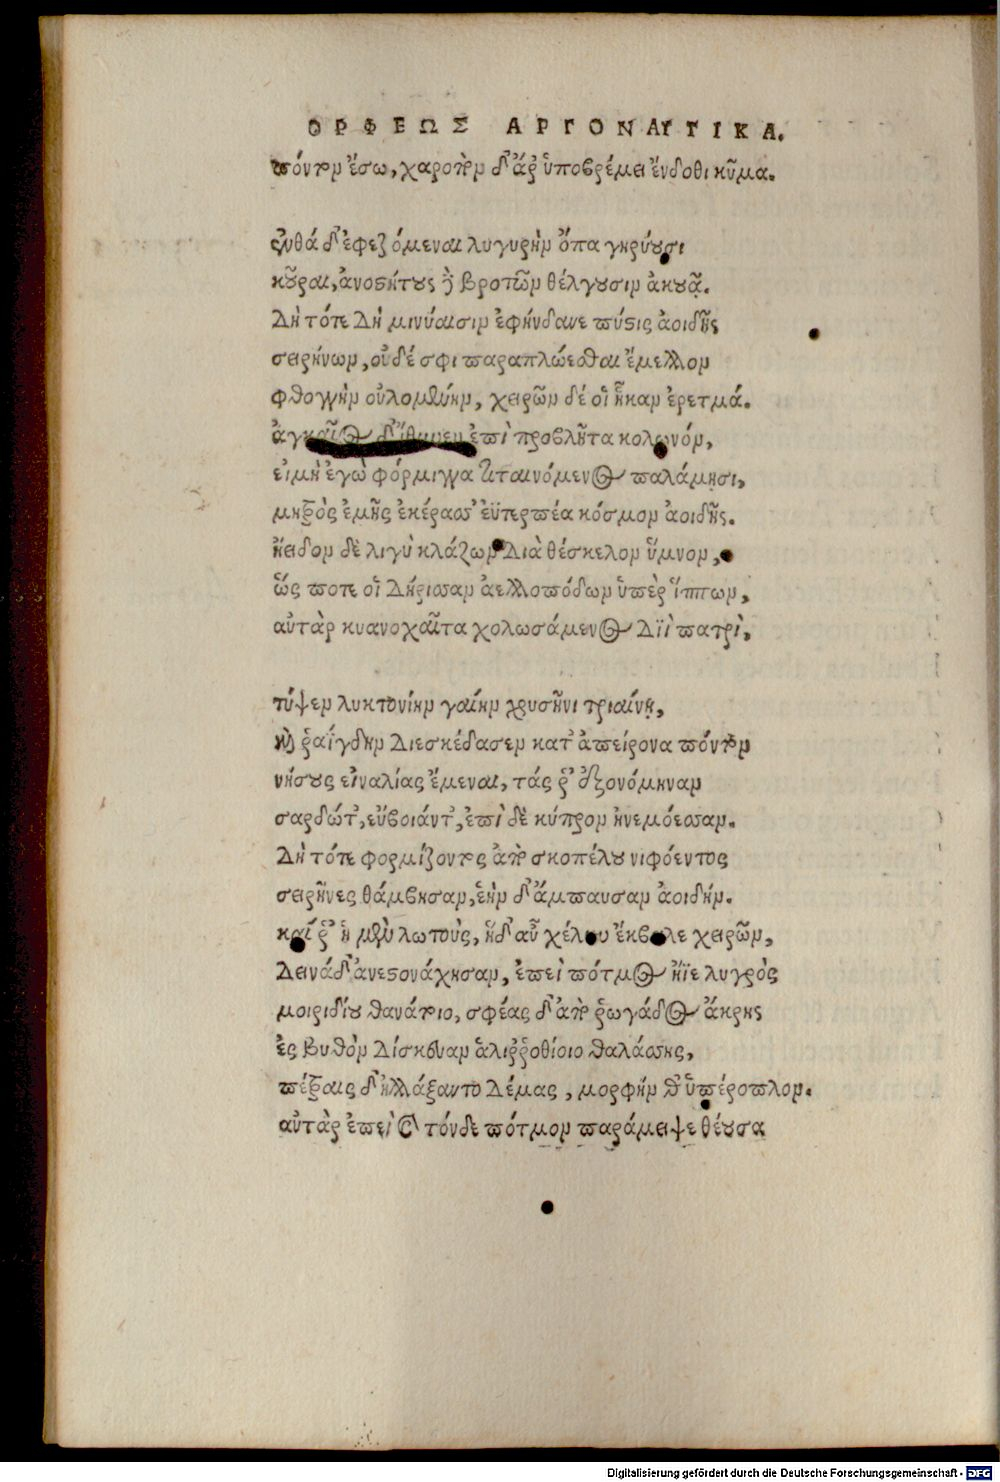 ΟΡΦΕΩΣ ΑΡΓΟΝΑΥΤΙΚΑ.
πόντον ἔσω, χαροπὸν δ' ἄρ ὑποβρέμει ἔνδοθι κῦμα.
ἔνθά δ' ἐφεζόμεναι λυγυρὴν ὄπα γηρύουσι
κοῦραι, ἀνοστήτους δὲ βροτῶν θέλγουσιν ἀκουάς.
Δὴ τότε Δὴ μινύαισιν ἐφήνδανε πύστις ἀοιδῆς
σειρήνων, οὐδέ σφι παραπλώεσθαι ἔμελλον
φθογγὴν οὐλομένην, χειρῶν δέ οἱ ἧκαν ἐρετμά.
ἀγκαῖος δ' ἴθυνεν ἐπὶ προβλῆτα κολωνόν,
εἰμὴ ἐγὼ φόρμιγγα τιταινόμενος παλάμησι,
μητρὸς ἐμῆς ἐκέρασσ' ἐϋτερπέα κόσμον ἀοιδῆς.
ἤειδον δὲ λιγὺ κλάζων Διὰ θέσκελον ὕμνον,
ὥς ποτε οἱ Δήρισσαν ἀελλοπόδων ὑπὲρ ἵππων,
αὐτὰρ κυανοχαῖτα χολωσάμενος Διῒ πατρὶ,
τύψεν λυκτονίην γαίην χρυσῆνι τριαίνῃ,
καὶ ῥαΐγδην Διεσκέδασεν κατ' ἀπείρονα πόντον
νήσους εἰναλίας ἔμεναι, τάς ῥ' ὀξονόμηναν
σαρδώτ', εὔβοιάντ', ἐπὶ δὲ κύπρον ἠνεμόεσσαν.
Δὴ τότε φορμίζοντος ἀπὸ σκοπέλου νιφόεντος
σειρῆνες θάμβησαν, ἑὴν δ' ἄμπαυσαν ἀοιδήν.
καί ῥ' ἡ μὲν λωτοὺς, ἥδ' αὖ χέλυν ἔκβαλε χειρῶν,
Δεινὰ δ' ἀνεστονάχησαν, ἐπεὶ πότμος ἤϊε λυγρὸς
μοιριδίου θανάτοιο, σφέας δ' ἀπὸ ῥωγάδος ἄκρης
ἐς βυθὸν Δίσκευαν ἁλιῤῥοθίοιο θαλάσσης,
πέτραις δ' ἠλλάξαντο Δέμας, μορφήν θ' ὑπέροπλον.
αὐτὰρ ἐπεὶ καὶ τόνδε πότμον παράμειψε θέουσα
Digitalisierung gefördert durch die Deutsche Forschungsgemeinschaft - DFG